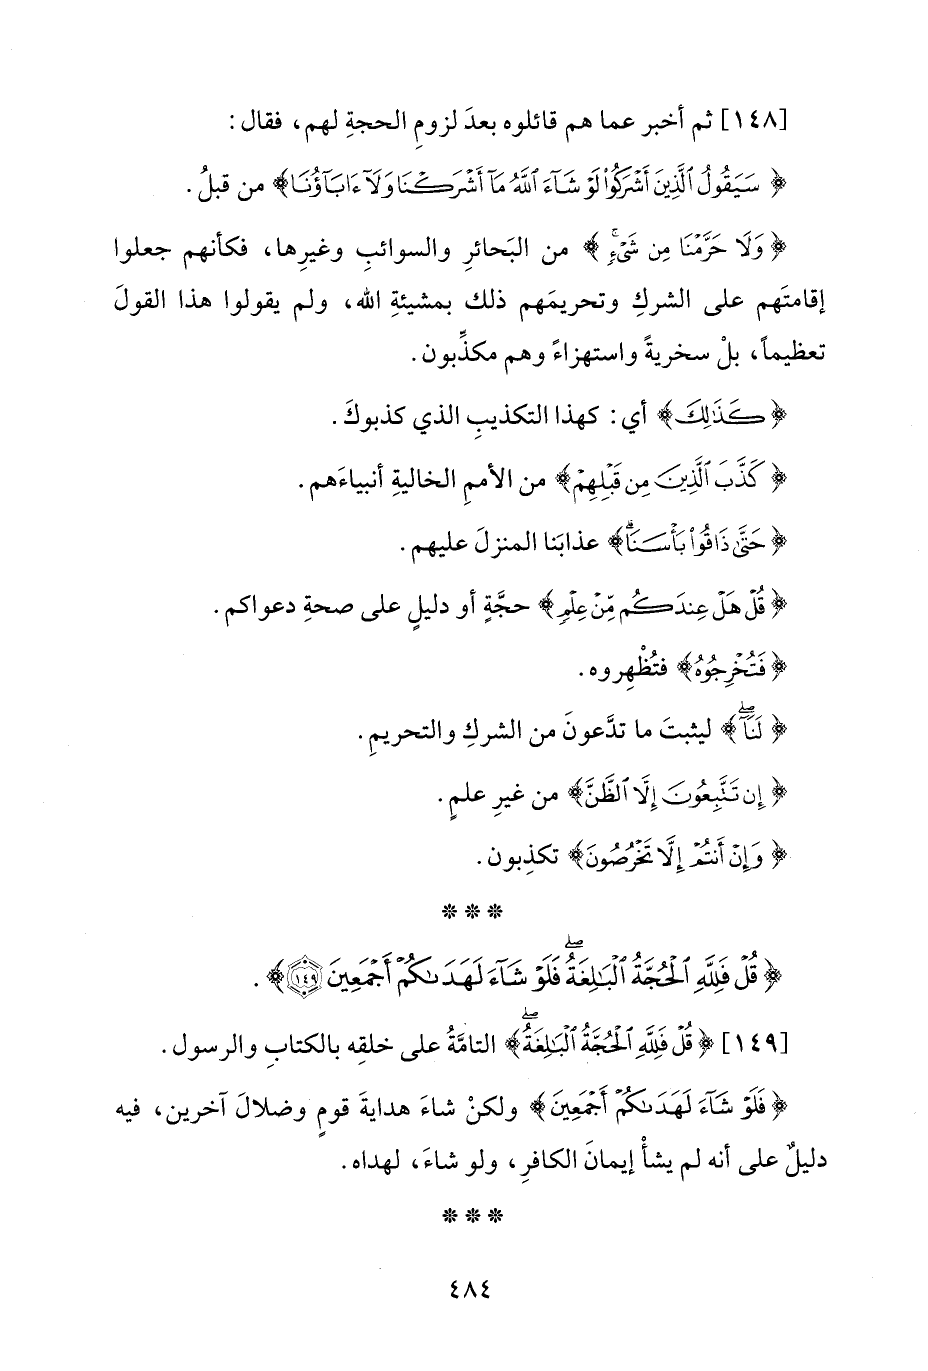 [١٤٨] ثم أخبر عما هم قائلوه بعدَ لزومِ الحجةِ لهم، فقال:
﴿سَيَقُولُ ٱلَّذِينَ أَشْرَكُوا۟ لَوْ شَآءَ ٱللَّهُ مَآ أَشْرَكْنَا وَلَآ ءَابَآؤُنَا﴾ من قبلُ.
﴿وَلَا حَرَّمْنَا مِن شَىْءٍۚ﴾ من البَحائرِ والسوائبِ وغيرِها، فكأنهم جعلوا
إقامتَهم على الشركِ وتحريمَهم ذلك بمشيئةِ الله، ولم يقولوا هذا القولَ
تعظيماً، بلْ سخريةً واستهزاءً وهم مكذِّبون.
﴿كَذَٰلِكَ﴾ أي: كهذا التكذيبِ الذي كذبوكَ.
﴿كَذَّبَ ٱلَّذِينَ مِن قَبْلِهِمْ﴾ من الأممِ الخاليةِ أنبياءَهم.
﴿حَتَّىٰ ذَاقُوا۟ بَأْسَنَاۗ﴾ عذابَنا المنزلَ عليهم.
﴿قُلْ هَلْ عِندَكُم مِّنْ عِلْمٍ﴾ حجَّةٍ أو دليلٍ على صحةِ دعواكم.
﴿فَتُخْرِجُوهُ﴾ فتُظْهِروه.
﴿لَنَآۖ﴾ ليثبتَ ما تدَّعونَ من الشركِ والتحريمِ.
﴿إِن تَتَّبِعُونَ إِلَّا ٱلظَّنَّ﴾ من غيرِ علمٍ.
﴿وَإِنْ أَنتُمْ إِلَّا تَخْرُصُونَ﴾ تكذِبون.
* * *
﴿قُلْ فَلِلَّهِ ٱلْحُجَّةُ ٱلْبَٰلِغَةُۖ فَلَوْ شَآءَ لَهَدَىٰكُمْ أَجْمَعِينَ ١٤٩﴾.
[١٤٩] ﴿قُلْ فَلِلَّهِ ٱلْحُجَّةُ ٱلْبَٰلِغَةُۖ﴾ التامَّةُ على خلقِه بالكتابِ والرسول.
﴿فَلَوْ شَآءَ لَهَدَىٰكُمْ أَجْمَعِينَ﴾ ولكنْ شاءَ هدايةَ قومٍ وضلالَ آخرين، فيه
دليلٌ على أنه لم يشأْ إيمانَ الكافرِ، ولو شاءَ، لهداه.
* * *
٤٨٤